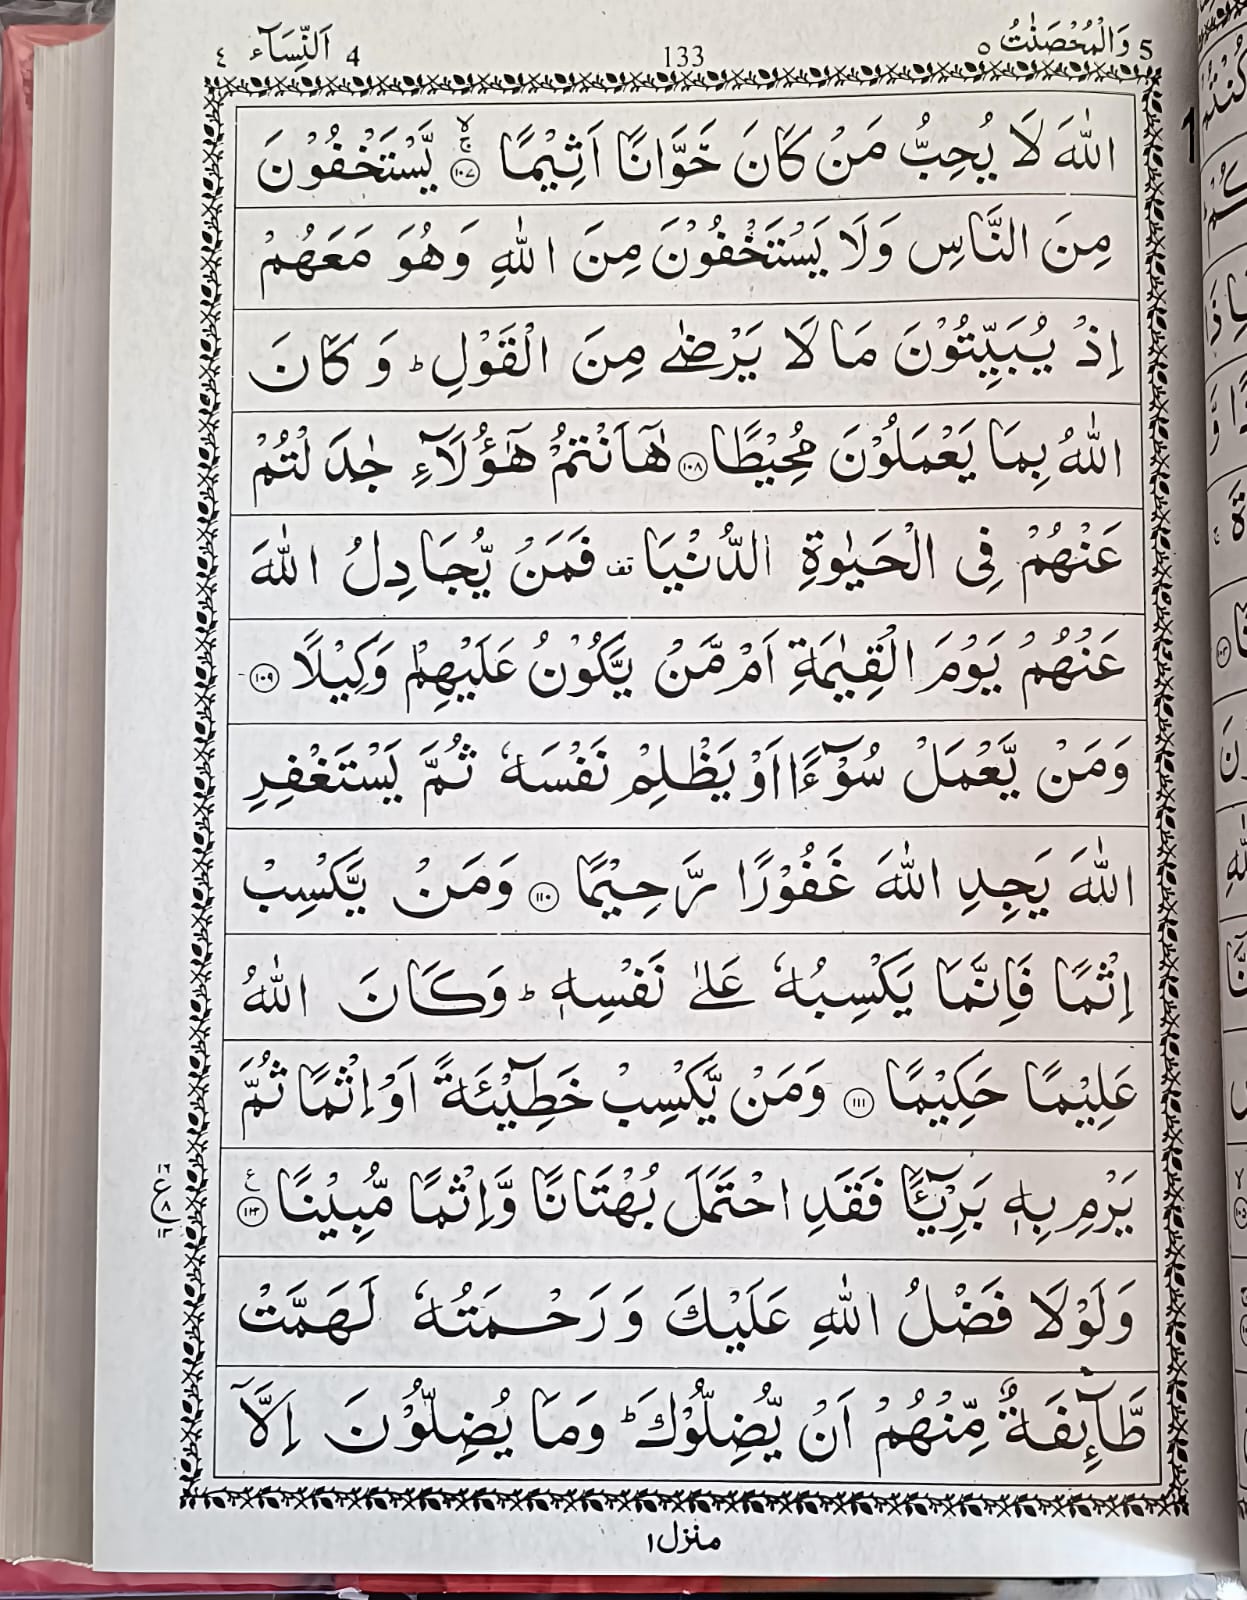 5 وَالْمُحْصَنٰتُ ٥ 133 4 اَلنِّسَآء ٤
اللّٰهَ لَا يُحِبُّ مَنْ كَانَ خَوَّانًا اَثِيْمًا ۚۙ ١٠٧ يَّسْتَخْفُوْنَ
مِنَ النَّاسِ وَلَا يَسْتَخْفُوْنَ مِنَ اللّٰهِ وَهُوَ مَعَهُمْ
اِذْ يُبَيِّتُوْنَ مَا لَا يَرْضٰى مِنَ الْقَوْلِ ؕ وَ كَانَ
اللّٰهُ بِمَا يَعْمَلُوْنَ مُحِيْطًا ١٠٨ هٰۤاَنْتُمْ هٰۤؤُلَآءِ جٰدَلْتُمْ
عَنْهُمْ فِى الْحَيٰوةِ الدُّنْيَا قف فَمَنْ يُّجَادِلُ اللّٰهَ
عَنْهُمْ يَوْمَ الْقِيٰمَةِ اَمْ مَّنْ يَّكُوْنُ عَلَيْهِمْ وَكِيْلًا ١٠٩
وَمَنْ يَّعْمَلْ سُوْٓءًا اَوْ يَظْلِمْ نَفْسَهٗ ثُمَّ يَسْتَغْفِرِ
اللّٰهَ يَجِدِ اللّٰهَ غَفُوْرًا رَّحِيْمًا ١١٠ وَمَنْ يَّكْسِبْ
اِثْمًا فَاِنَّمَا يَكْسِبُهٗ عَلٰى نَفْسِهٖ ؕ وَكَانَ اللّٰهُ
عَلِيْمًا حَكِيْمًا ١١١ وَمَنْ يَّكْسِبْ خَطِيْٓئَةً اَوْ اِثْمًا ثُمَّ
يَرْمِ بِهٖ بَرِيْٓئًا فَقَدِ احْتَمَلَ بُهْتَانًا وَّاِثْمًا مُّبِيْنًا ع ١١٢
ع ٨ ١٣
وَلَوْلَا فَضْلُ اللّٰهِ عَلَيْكَ وَ رَحْمَتُهٗ لَهَمَّتْ
طَّآئِفَةٌ مِّنْهُمْ اَنْ يُّضِلُّوْكَ ؕ وَمَا يُضِلُّوْنَ اِلَّآ
منزل ١